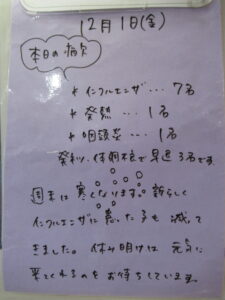 12月1日(金)
本日の病欠
* インフルエンザ・・・ 7名
* 発熱 ・・・ 1名
* 咽頭炎・・・ 1名
発熱、体調不良で早退 3名です
週末は寒くなります。新らしく
インフルエンザに罹った子も 減って
きました。休み明けは 元気に
来てくれるのをお待ちしています。